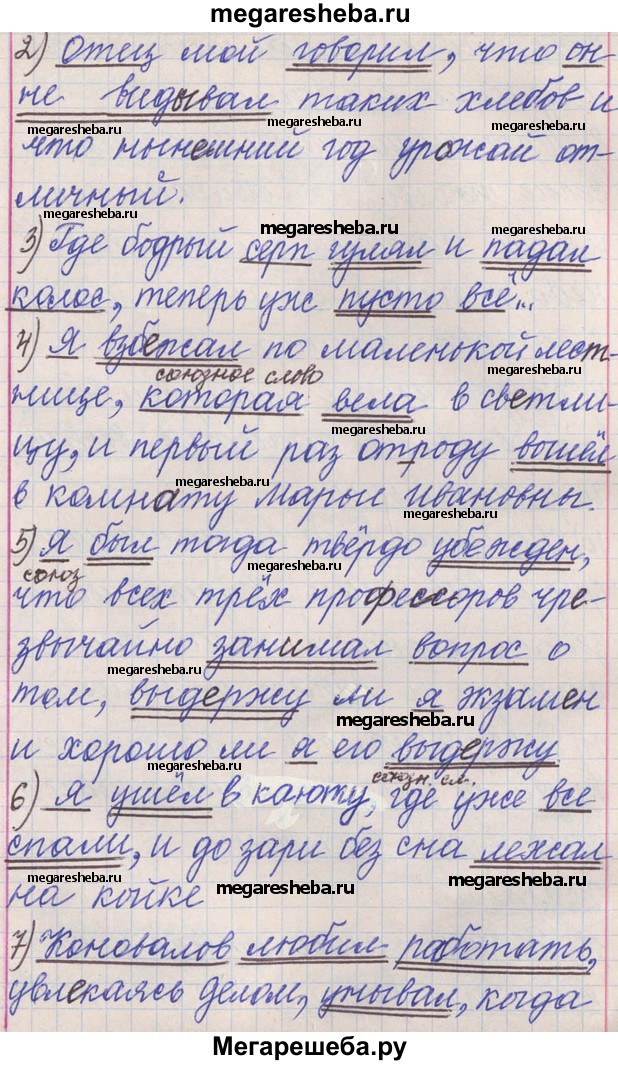 megaresheba.ru
2) Отец мой говорил, что он
не видывал таких хлебов и
megaresheba.ru megaresheba.ru megaresheba.ru
что нынешний год урожай от-
личный.
megaresheba.ru megaresheba.ru
3) Где бодрый серп гулял и падал
megaresheba.ru
колос, теперь уж пусто всё...
4) Я взбежал по маленькой лест-
союзное слово
нице, которая вела в светли-
megaresheba.ru
цу, и первый раз отроду вошёл
megaresheba.ru
в комнату Марьи Ивановны.
megaresheba.ru
5) Я был тогда твёрдо убежден,
союз megaresheba.ru
что всех трёх профессоров чре-
звычайно занимал вопрос о
megaresheba.ru
том, выдержу ли я экзамен
megaresheba.ru
и хорошо ли я его выдержу
megaresheba.ru союзн. сл.
6) Я ушёл в каюту, где уже все
спали, и до зари без сна лежал
на койке megaresheba.ru megaresheba.ru
7) Коновалов любил работать,
увлекаясь делом, унывал, когда
Мегарешеба.ру